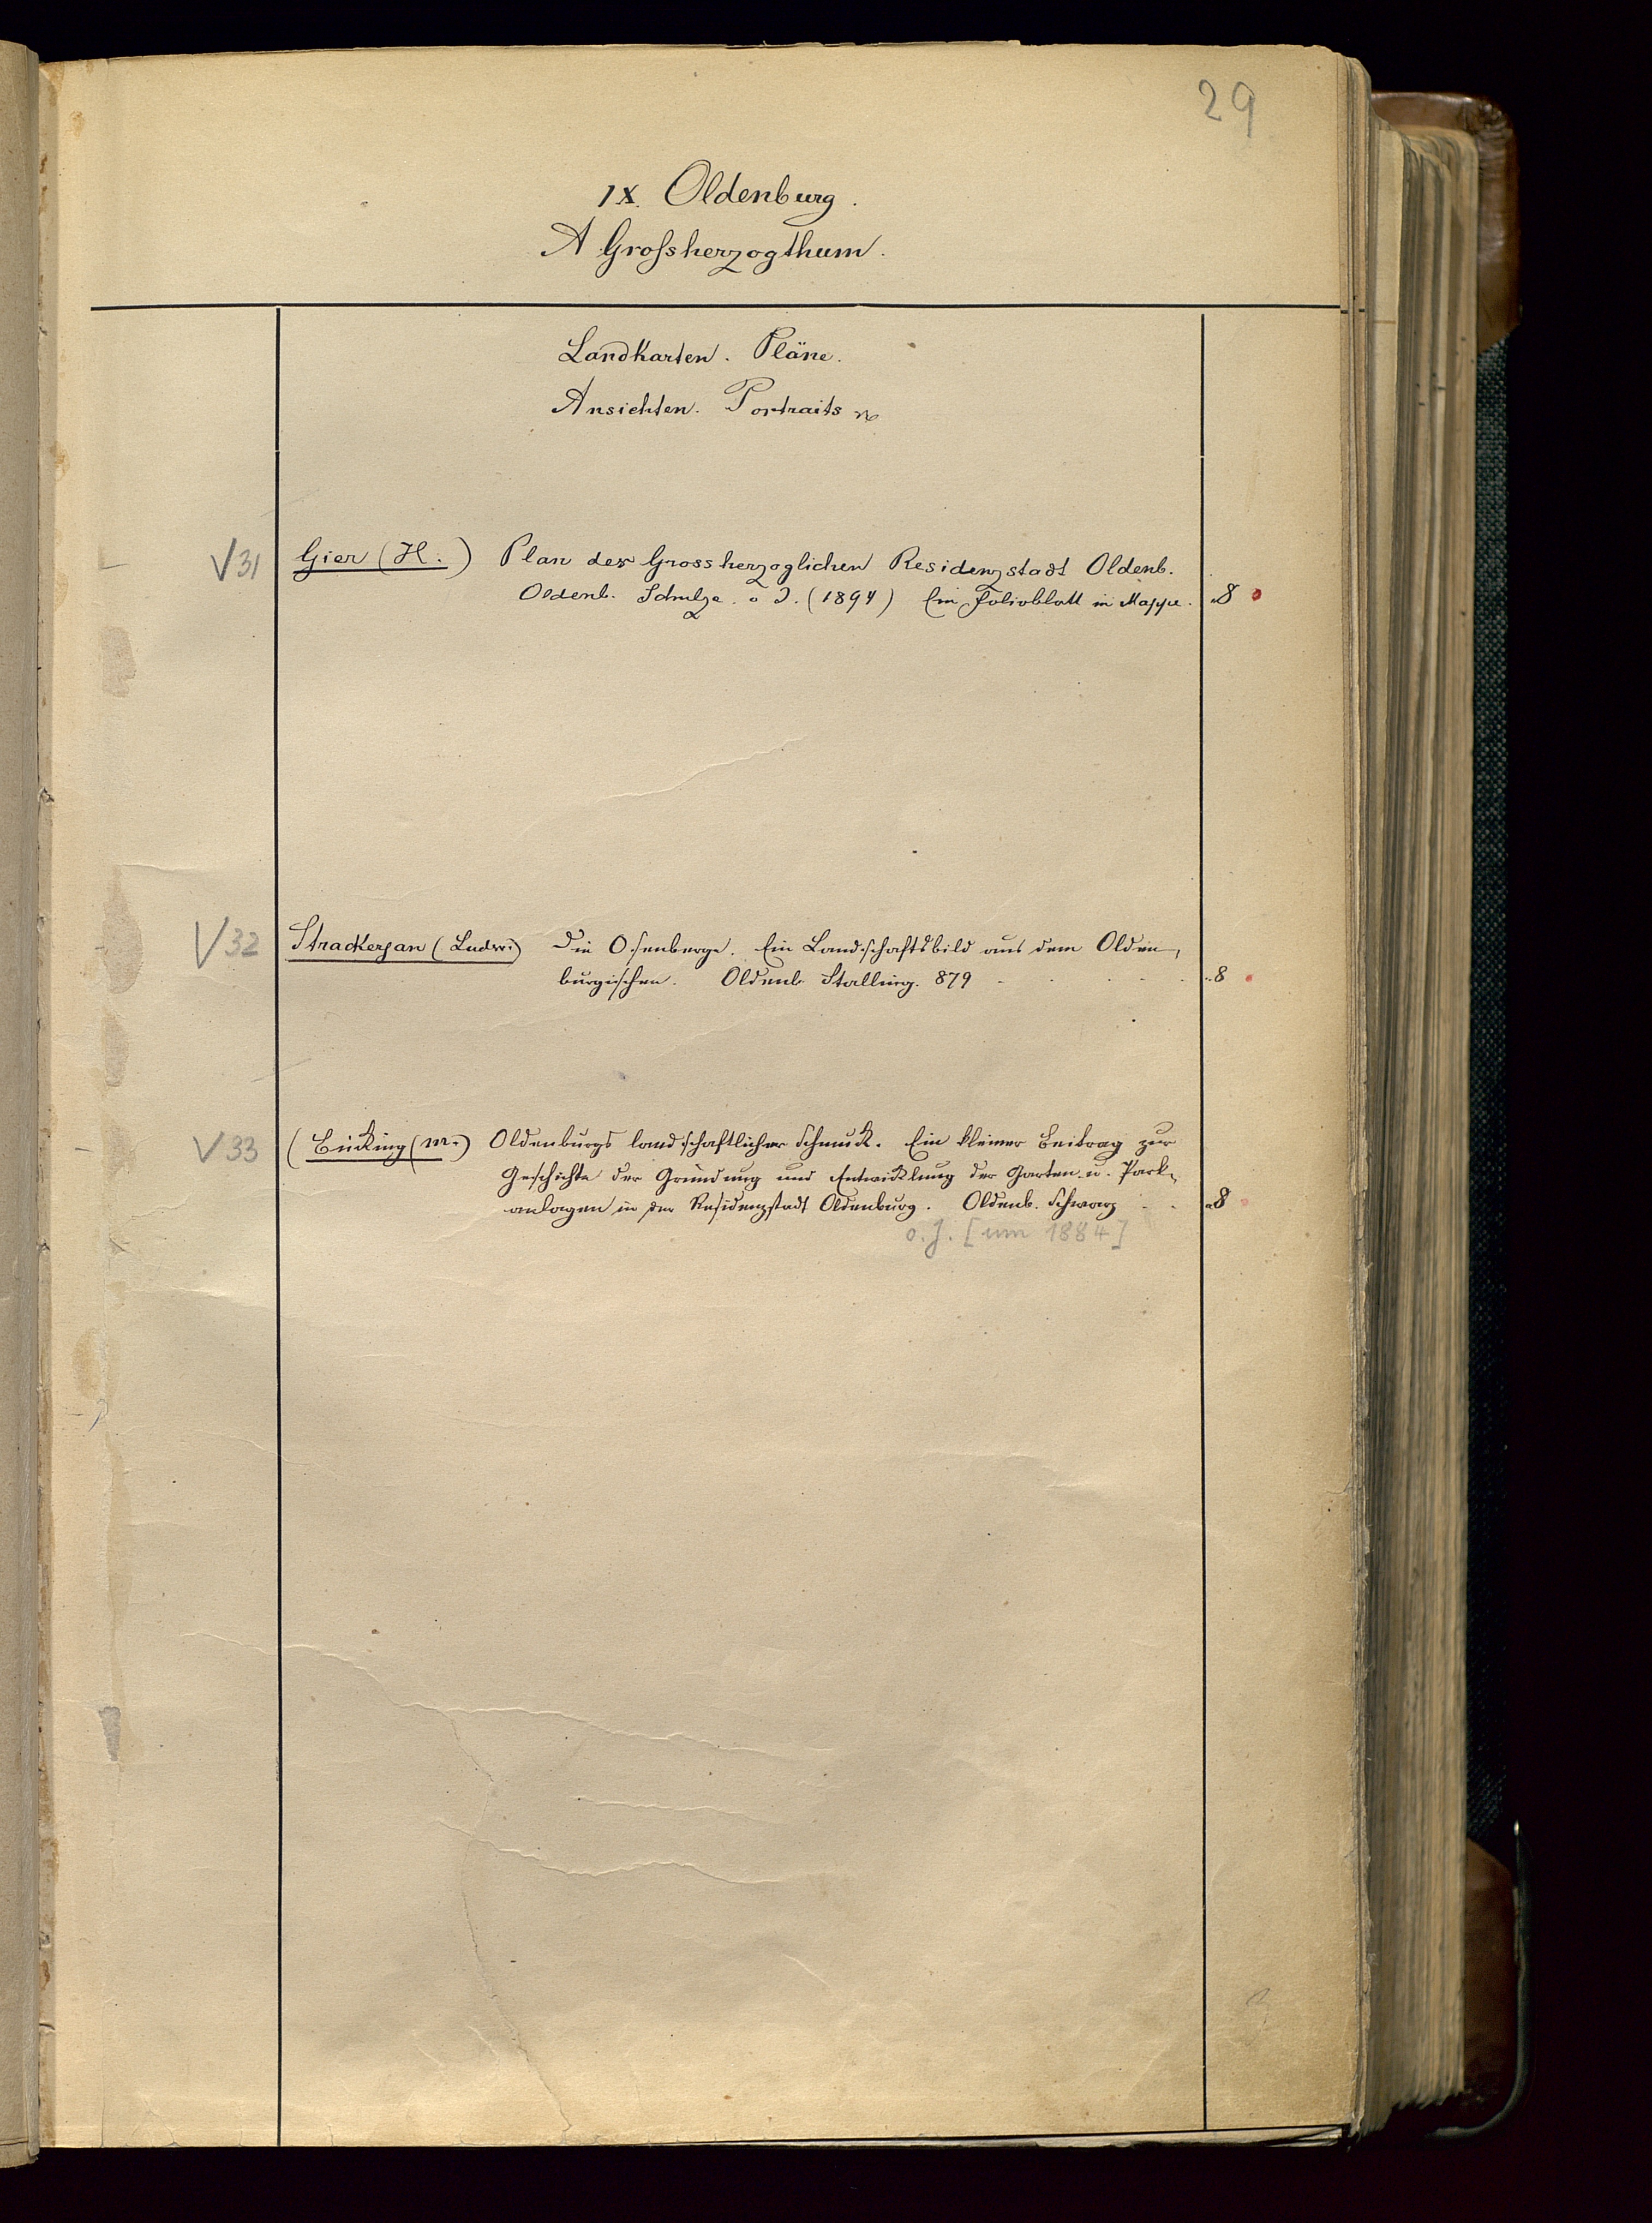 29
IX. Oldenburg.
A Grossherzogthum.
Landkarten. Pläne.
Ansichten. Portraits
V 31 Gier (H.) Plan der Grossherzoglichen Residenzstadt Oldenb.
Oldenb. Schulze. o J. (1894) Ein Folioblatt in Mappe. 8
V 32 Strackerjan (Ludwi) Die Osenberge. Ein Landschaftsbild aus dem Olden-
burgischen. Oldenb. Stalling. 879 8
V 33 (Bücking (M.) Oldenburgs landschaftlicher Schmuck. Ein kleiner Beitrag zur
Geschichte der Gründung und Entwicklung der Garten- u. Park-
anlagen in der Residenzstadt Oldenburg. Oldenb. Schwarz 8
o. J. [um 1884]